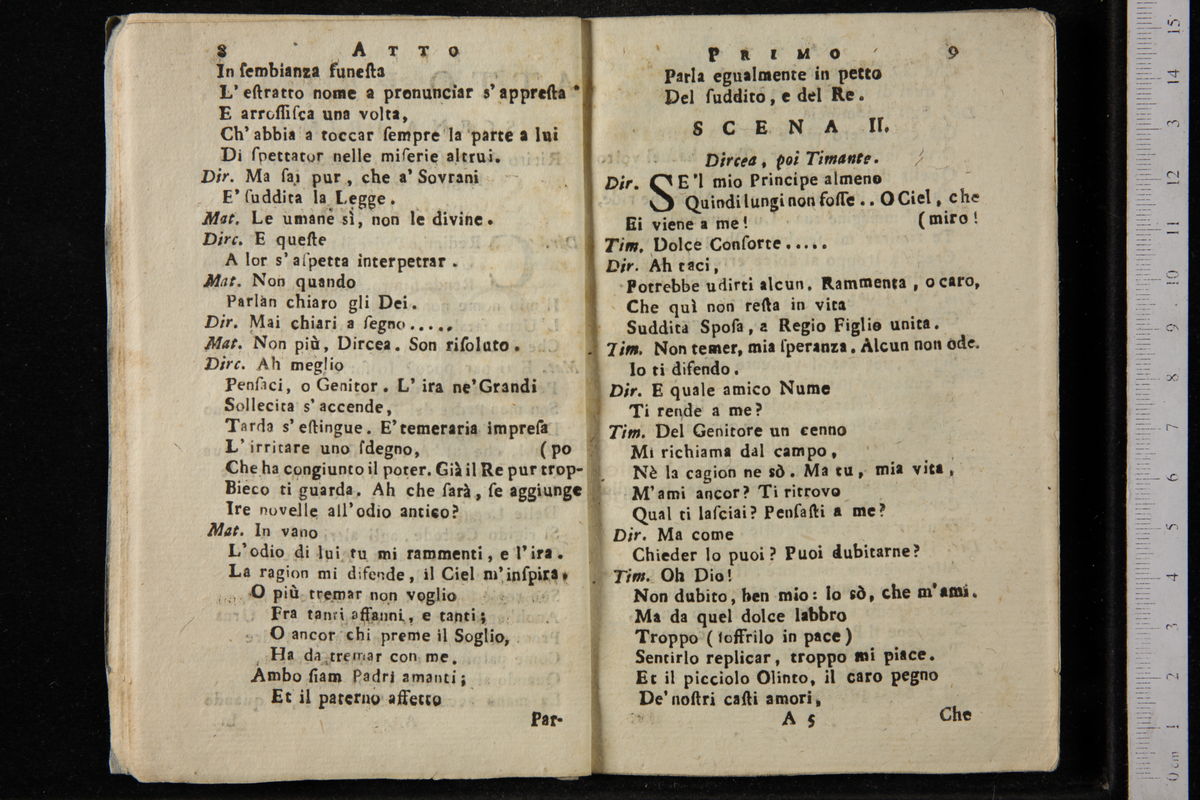 8 ATTO
In ſembianza funeſta
L' eſtratto nome a pronunciar s' appreſta
E arroſſiſca una volta,
Ch' abbia a toccar ſempre la parte a lui
Di ſpettator nelle miſerie altrui.
Dir. Ma ſai pur, che a' Sovrani
E' ſuddita la Legge.
Mat. Le umane sì, non le divine.
Dirc. E queſte
A lor s' aſpetta interpetrar.
Mat. Non quando
Parlan chiaro gli Dei.
Dir. Mai chiari a ſegno.....
Mat. Non più, Dircea. Son riſoluto.
Dirc. Ah meglio
Penſaci, o Genitor. L' ira ne' Grandi
Sollecita s' accende,
Tarda s' eſtingue. E' temeraria impreſa
L' irritare uno ſdegno, (po
Che ha congiunto il poter. Già il Re pur trop-
Bieco ti guarda. Ah che ſarà, ſe aggiunge
Ire novelle all' odio antico?
Mat. In vano
L' odio di lui tu mi rammenti, e l' ira.
La ragion mi difende, il Ciel m' inſpira.
O più tremar non voglio
Fra tanti affanni, e tanti;
O ancor chi preme il Soglio,
Ha da tremar con me.
Ambo ſiam Padri amanti;
Et il paterno affetto
Par-
PRIMO 9
Parla egualmente in petto
Del ſuddito, e del Re.
SCENA II.
Dircea, poi Timante.
Dir. SE'l mio Principe almeno
Quindi lungi non foſſe.. O Ciel, che
Ei viene a me! (miro!
Tim. Dolce Conſorte.....
Dir. Ah taci,
Potrebbe udirti alcun. Rammenta, o caro,
Che quì non reſta in vita
Suddita Spoſa, a Regio Figlio unita.
Tim. Non temer, mia ſperanza. Alcun non ode.
Io ti difendo.
Dir. E quale amico Nume
Ti rende a me?
Tim. Del Genitore un cenno
Mi richiama dal campo,
Nè la cagion ne sò. Ma tu, mia vita,
M' ami ancor? Ti ritrovo
Qual ti laſciai? Penſaſti a me?
Dir. Ma come
Chieder lo puoi? Puoi dubitarne?
Tim. Oh Dio!
Non dubito, ben mio: lo sò, che m' ami.
Ma da quel dolce labbro
Troppo (ſoffrilo in pace)
Sentirlo replicar, troppo mi piace.
Et il picciolo Olinto, il caro pegno
De' noſtri caſti amori,
A 5 Che
0 cm 1 2 3 4 5 6 7 8 9 10 11 12 13 14 15